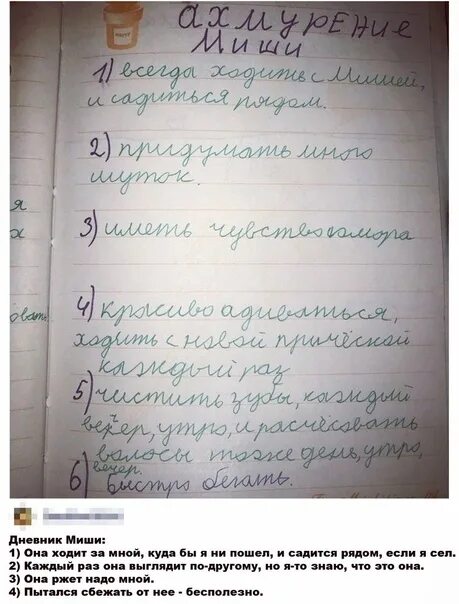 ахмурение
Миши
1) всегда ходить с Мишей,
и садиться рядом.
2) придумать много
шуток.
3) иметь чувство юмора
я
х
4) красиво адиваться,
овать
ходить с новой причёской
каждый раз
5) чистить зубы, каждый
вечер, утро, и расчёсовать
волосы тоже день, утро,
вечер.
6) Быстро бегать.
Дневник Миши:
1) Она ходит за мной, куда бы я ни пошел, и садится рядом, если я сел.
2) Каждый раз она выглядит по-другому, но я-то знаю, что это она.
3) Она ржет надо мной.
4) Пытался сбежать от нее - бесполезно.